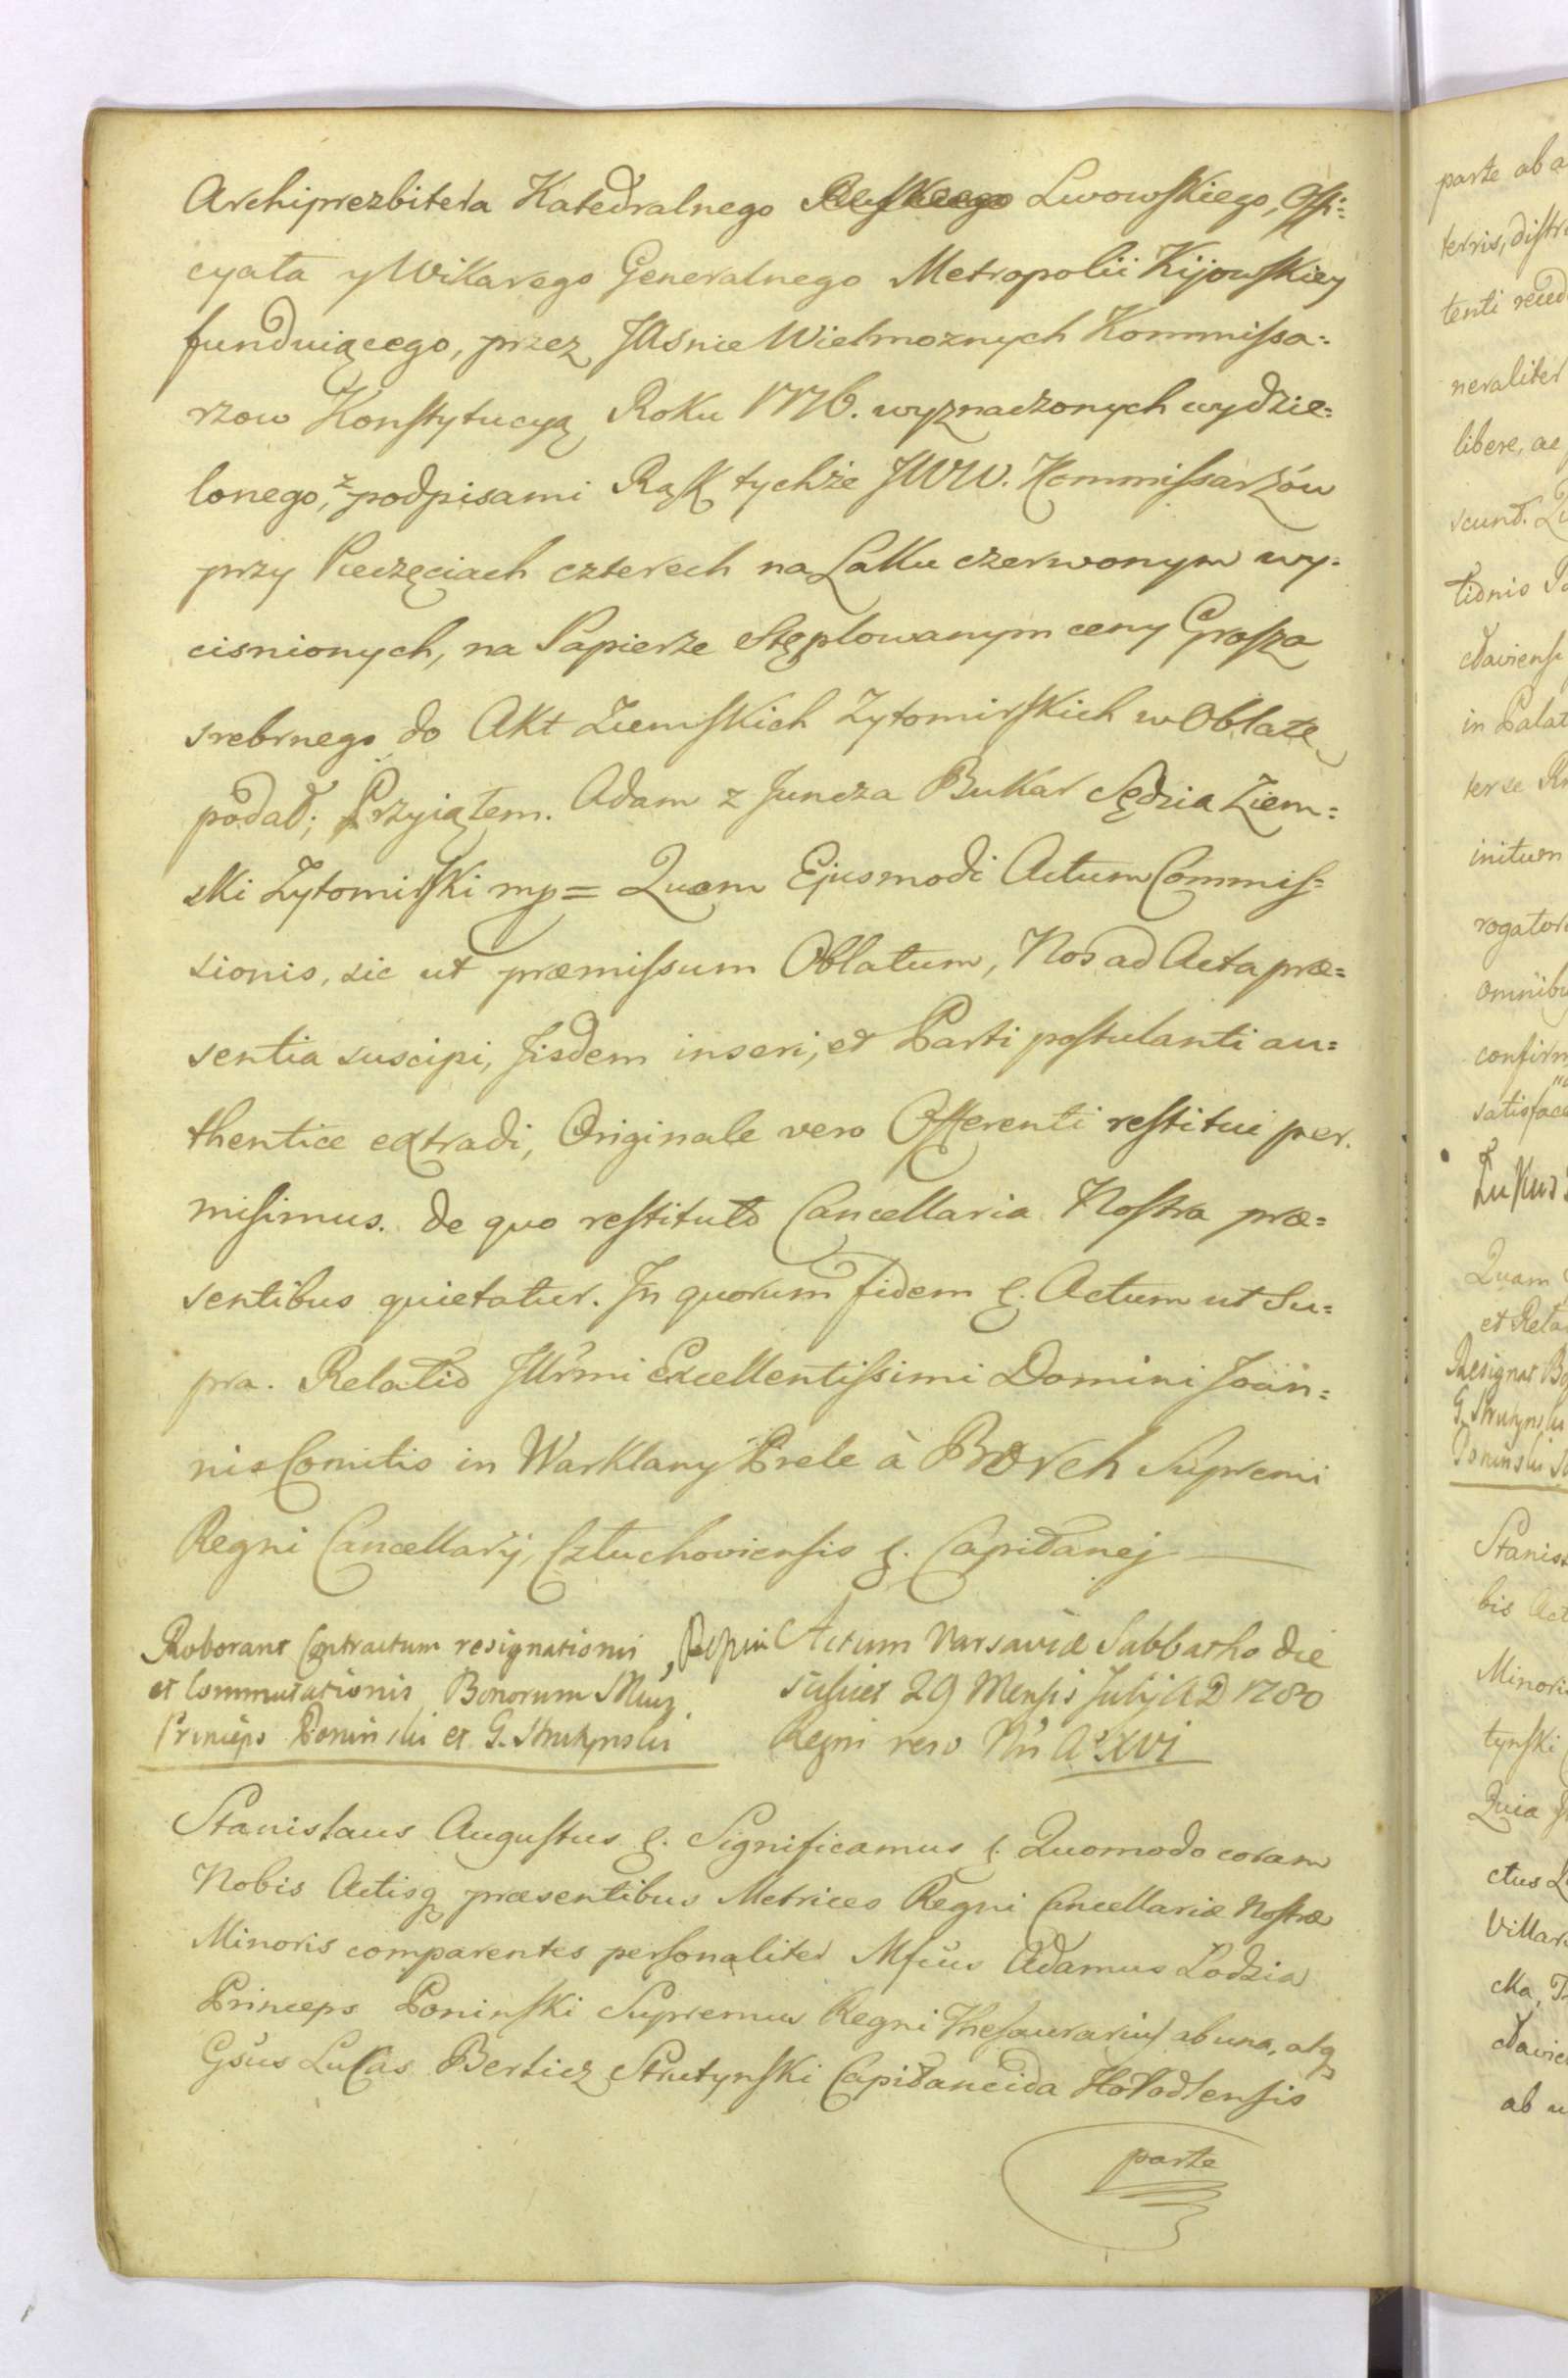 Archiprezbitera Katedralnego Lwowskiego, Offi:
cyała y Wikarego Generalnego Metropolii Kijowskiey
funduiącego, przez JAsnie Wielmoznych Kommissa:
rzow Konstytucyą Roku 1776. wyznaczonych wydzie:
lonego, z podpisami Rąk tychże JWW. Kommissarzów
przy Pieczęciach czterech na Laku czerwonym wy:
cisnionych, na Papierze Stęplowanym ceny Grosza
srebrnego do Akt Ziemskich Zytomirskich w Oblatę
podał; Przyiąłem. Adam z Juncza Bukar Sędzia Ziem:
ski Zytomirski mp = Quam Ejusmodi Actum Commis=
sionis, sic ut præmissum Oblatum, Nos ad Acta præ=
sentia suscipi, Jisdem inseri, et Parti postulanti au=
thentice extradi, Originale vero Offerenti restitui per.
misimus. De quo restituto Cancellaria Nostra præ=
sentibus quietatur. In quorum fidem &. Actum ut Su=
pra. Relatio Jllrmi Excellentissimi Domini Joan=
nis Comitis in Warklany Prele à Borch Supremi
Regni Cancellarij, Człuchoviensis &. Capitanej
Roborant Contractum resignationis
et Commutationis Bonorum
Princeps Poninski et G. Strutynski
Actum Varsaviæ Sabbatho die
29 Mensis Julij AD 1780
Regni vero Nri Ao XVI
Stanislaus Augustus &. Significamus &. Quomodo coram
Nobis Actisq præsentibus Metrices Regni Cancellariæ Nostræ
Minoris comparentes personaliter Mfcus Adamus Lodzia
Princeps Poninski Supremus Regni Thesaurarius ab una, atq
Gsus Lucas Berlicz Strutynski Capitaneida
parte
parte ab a
terris, distr
tenti
neraliter
libere, ac
scunt.
tionis
in Palat
ter se
initum
rogator
omnibu
confirm
satisfac
Quam
et Rela
Resignat Bo
G. Strutynski
Poninski
Stanis
bis Act
Minoris
tynski
Quia
ctus
Villar
cka,
ab u